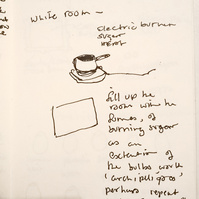 white room —
electric burner
sugar
fill up the
room with the
fumes, of
burning sugar
as an
extention of
the bulbs work
'archipelagos'
perhaps repeat